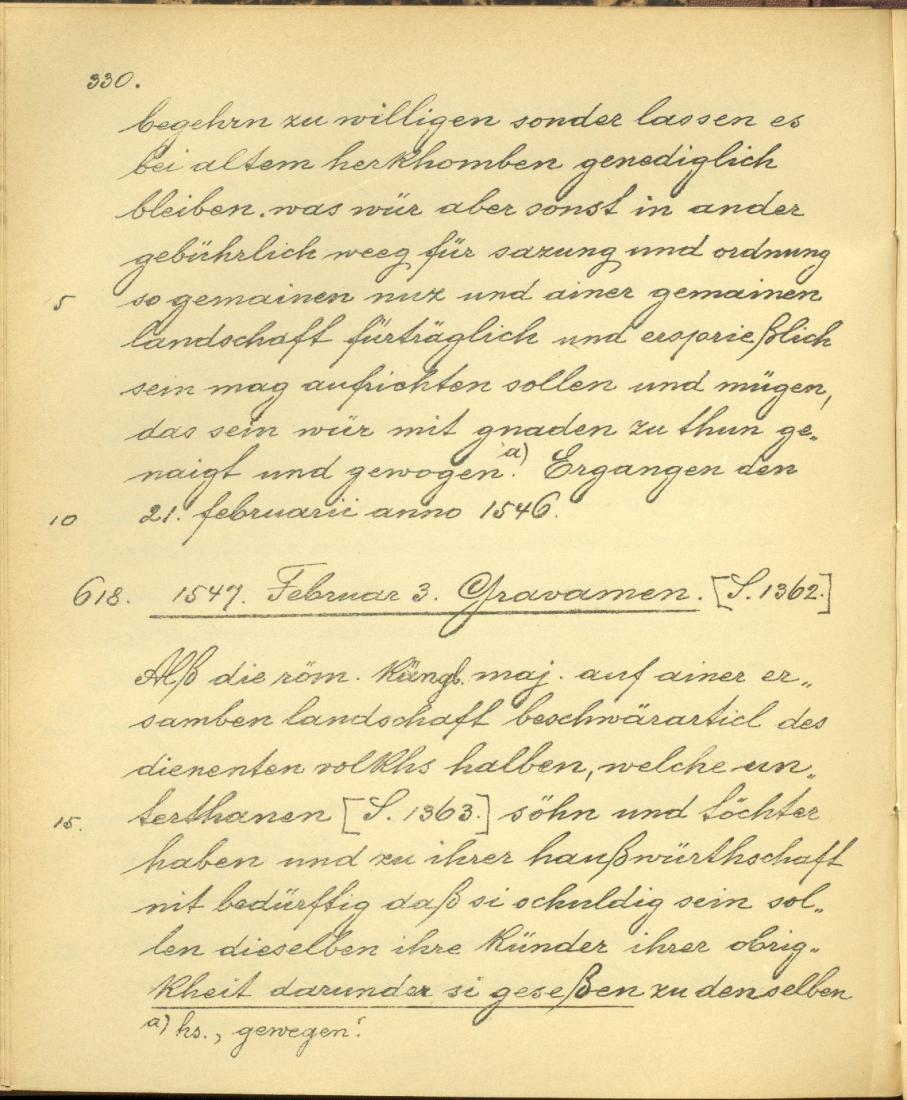 330.
begehrn zu willigen sonder lassen es
bei altem herkhomben genediglich
bleiben. was wür aber sonst in ander
gebührlich weeg für sazung und ordnung
5 so gemainen nuz und ainer gemainen
landschaft fürträglich und ersprießlich
sein mag aufrichten sollen und mügen,
das sein wür mit gnaden zu thun ge„
naigt und gewogen.a) Ergangen den
10 21. februarii anno 1546.
618. 1547. Februar 3. Gravamen. [S. 1362.]
Alß die röm. küngl. maj. auf ainer er„
samben landschaft beschwärarticl des
dienenten volkhs halben, welche un„
15. terthanen [S. 1363.] söhn und töchter
haben und zu ihrer haußwürthschaft
nit bedürftig daß si schuldig sein sol„
len dieselben ihre künder ihrer obrig„
kheit darunder si geseßen zu denselben
a) hs., gewegen‘.